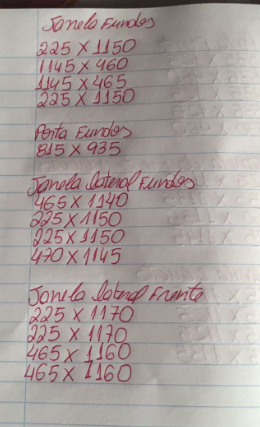 Janela Fundos
225 X 1150
1145 X 460
1145 X 465
225 X 1150
Porta Fundos
815 X 935
Janela lateral Fundos
465 X 1140
225 X 1150
225 X 1150
470 X 1145
Janela lateral Frente
225 X 1170
225 X 1170
465 X 1160
465 X 1160